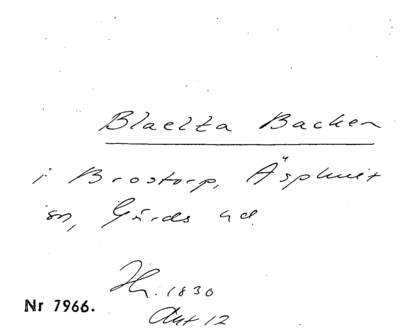 Blaelta Backen
i Brostorp, Äsphult
sn, Gärds hd.
Hr. 1830
Akt 12
Nr 7966.